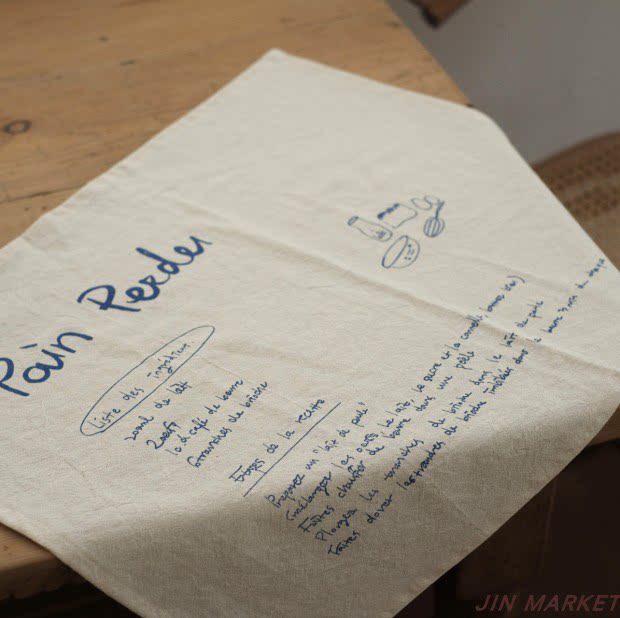 Pain Perdu
Liste des ingrédients
200ml de lait
200ft
1 c. à café de beurre
6 tranches de brioche
Etapes de la recette
Préparez un "lait de poule"
mélanger les oeufs, le lait, le sucre et la cannelle
Faites chauffer de beurre dans une poêle
Plongez les tranches de brioche dans le lait de poule
Faites dorer les tranches de brioche imbibées dans le beurre
JIN MARKET